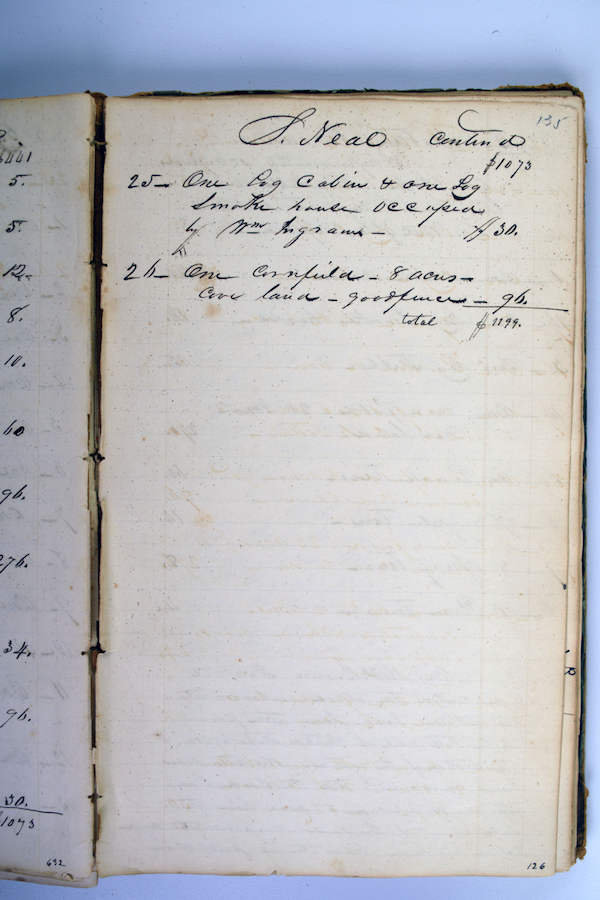 4441
5.
5.
12.
8.
10.
60
96.
276.
34.
96.
30.
$1073
632
135
S. Neal contin'd
$1073
25 — One Log Cabin & one Log
Smoke house occupied
by Wm Ingram — $ 30.
26 — One Cornfield — 8 acres —
Cove land — good fence — 96.
total $ 1199.
126